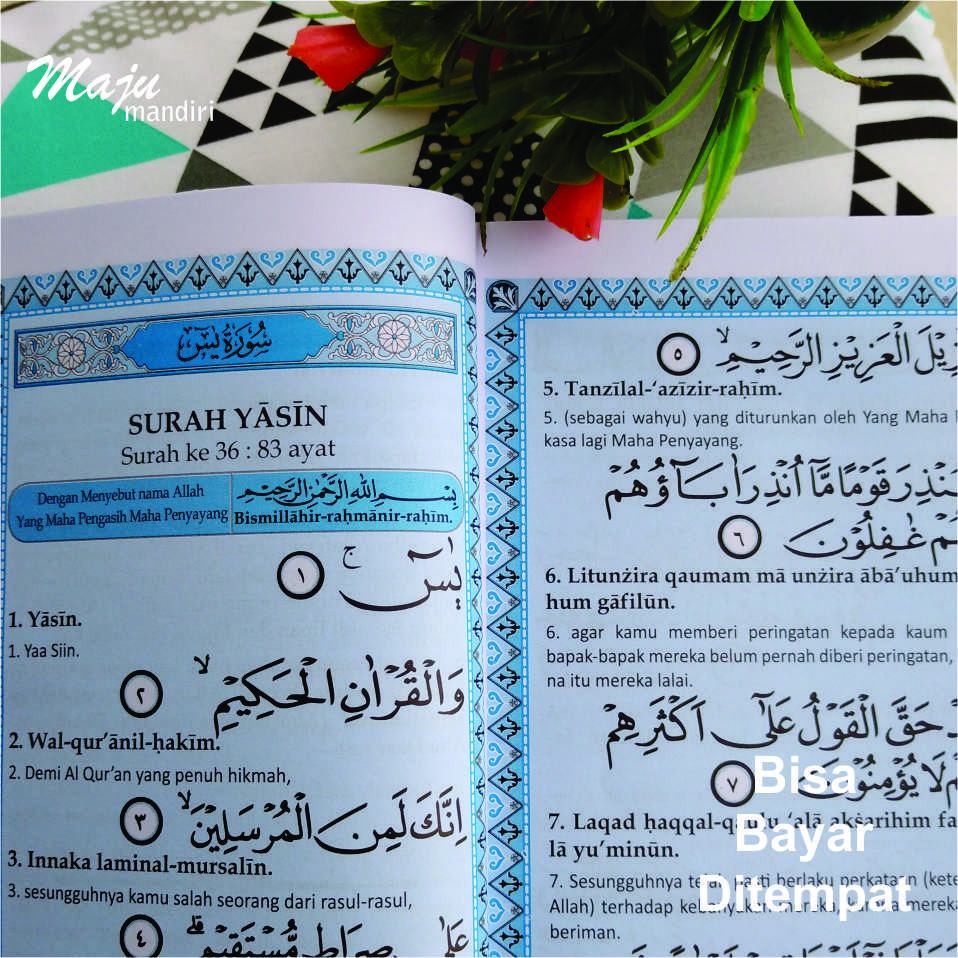 Maju
mandiri
سُوْرَةُ يٰسٓ
SURAH YĀSĪN
Surah ke 36 : 83 ayat
Dengan Menyebut nama Allah
Yang Maha Pengasih Maha Penyayang
بِسْمِ اللّٰهِ الرَّحْمٰنِ الرَّحِيْمِ
Bismillāhir-raḥmānir-raḥīm.
يٰسۤ ۚ ١
1. Yāsīn.
1. Yaa Siin.
وَالْقُرْاٰنِ الْحَكِيْمِۙ ٢
2. Wal-qur’ānil-ḥakīm.
2. Demi Al Qur’an yang penuh hikmah,
اِنَّكَ لَمِنَ الْمُرْسَلِيْنَۙ ٣
3. Innaka laminal-mursalīn.
3. sesungguhnya kamu salah seorang dari rasul-rasul,
عَلٰى صِرَاطٍ مُّسْتَقِيْمٍۗ ٤
الْعَزِيْزِ الرَّحِيْمِۙ ٥
5. Tanzīlal-‘azīzir-raḥīm.
5. (sebagai wahyu) yang diturunkan oleh Yang Maha
kasa lagi Maha Penyayang.
قَوْمًا مَّآ اُنْذِرَ اٰبَاۤؤُهُمْ
غٰفِلُوْنَ ٦
6. Litunżira qaumam mā unżira ābā’uhum
hum gāfilūn.
6. agar kamu memberi peringatan kepada kaum
bapak-bapak mereka belum pernah diberi peringatan,
na itu mereka lalai.
حَقَّ الْقَوْلُ عَلٰٓى اَكْثَرِهِمْ
لَا يُؤْمِنُوْنَ ٧
7. Laqad ḥaqqal-qaulu ‘alā akṡarihim fa
lā yu’minūn.
7. Sesungguhnya telah pasti berlaku perkataan (kete
Allah) terhadap kebanyakan mereka, karena mereka
beriman.
Bisa
Bayar
Ditempat